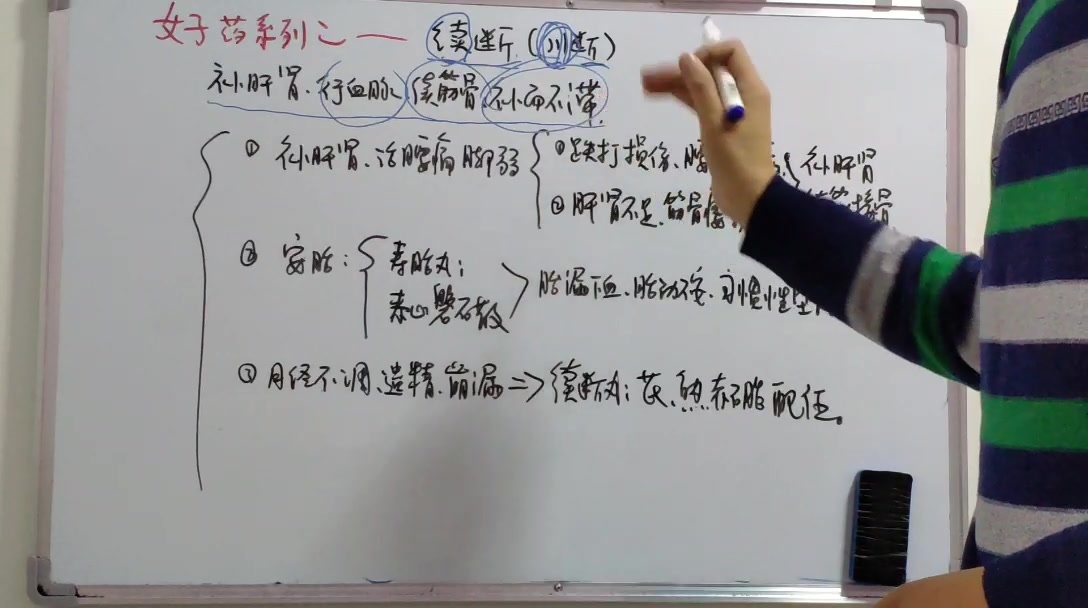 女子药系列之一 续断(川断)
补肝肾、行血脉、续筋骨、补而不滞.
① 补肝肾、治腰痛脚弱 {①跌打损伤、腰 补肝肾
②肝肾不足.筋骨 接骨
② 安胎:{寿胎丸;
泰山磐石散
胎漏下血、胎动不安、习惯性
③ 月经不调、遗精、崩漏=>续断丸:芪、熟、赤石脂配伍。